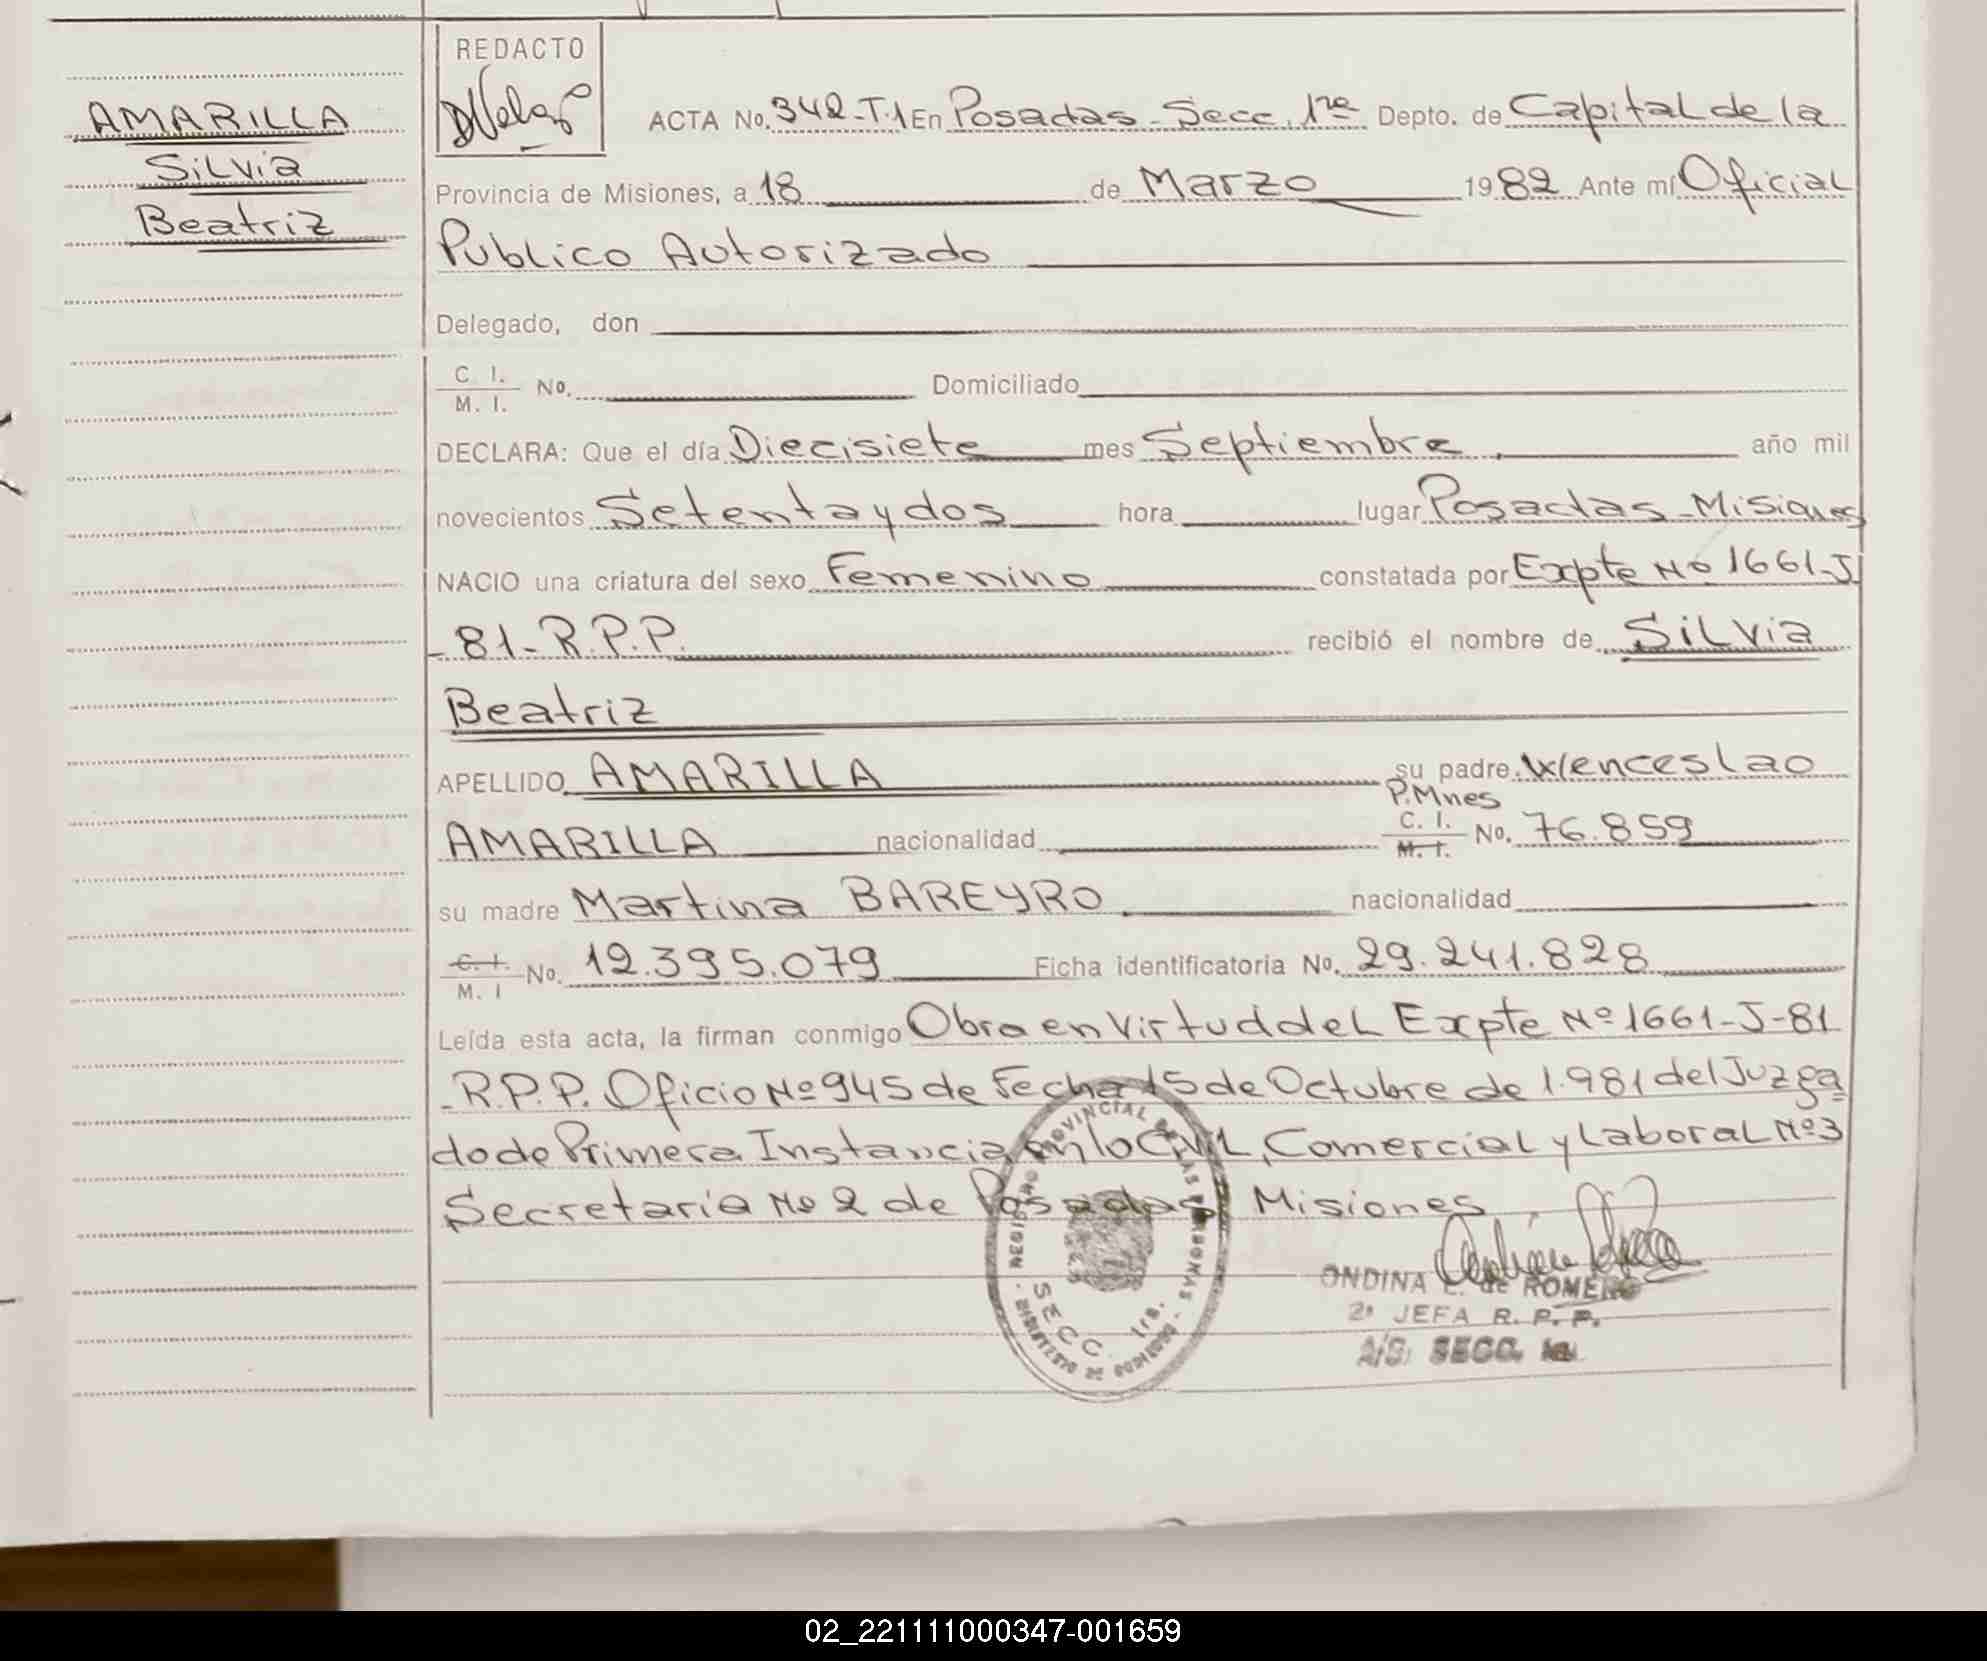 REDACTO
AMARILLA
Silvia
Beatriz
ACTA No. 342-T.1 En Posadas - Secc. 1ra Depto. de Capital de la
Provincia de Misiones, a 18 de Marzo 1982 Ante mí Oficial
Publico Autorizado
Delegado, don
C. I.
M. I. No. Domiciliado
DECLARA: Que el día Diecisiete mes Septiembre año mil
novecientos Setenta y dos hora lugar Posadas - Misiones
NACIO una criatura del sexo Femenino constatada por Expte Nº 1661-J
- 81- R.P.P. recibió el nombre de Silvia
Beatriz
APELLIDO AMARILLA su padre Wenceslao
P.Mnes
AMARILLA nacionalidad C. I. No. 76.859
M. I.
su madre Martina BAREYRO nacionalidad
C. I. No. 12.395.079 Ficha identificatoria No. 29.241.828
M. I
Leída esta acta, la firman conmigo Obra en virtud del Expte Nº 1661-J-81
- R.P.P. Oficio Nº 945 de Fecha 15 de Octubre de 1.981 del Juzga
do de Primera Instancia en lo Civil, Comercial y Laboral Nº 3
Secretaria Nº 2 de Posadas Misiones
REGISTRO PROVINCIAL DE LAS PERSONAS
SECC. 1ra.
ONDINA E. de ROMERO
2ª JEFA R. P. P.
A/C. SECC. 1a
02_221111000347-001659